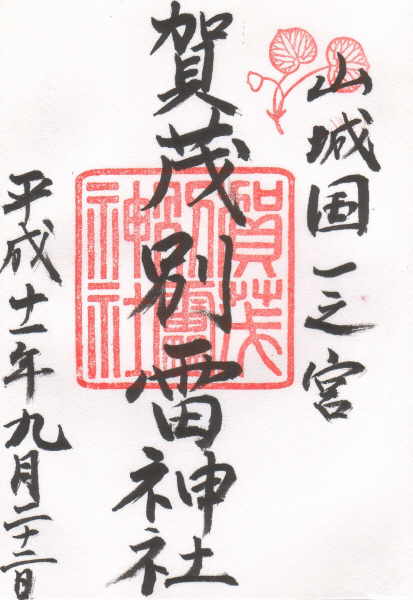 山城国一之宮
賀茂別雷神社
賀茂別雷神社
平成十一年九月二十二日